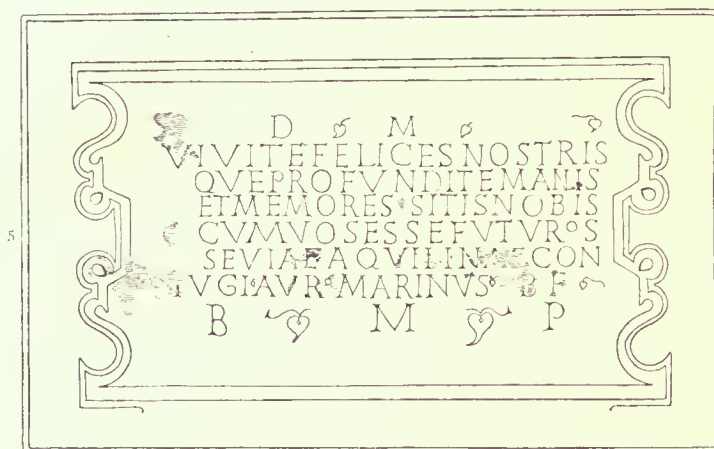 D M
VIVITEFELICESNOSTRIS
QVEPROFVNDITEMANIS
ETMEMORES SITISNOBIS
5
CVMVOSESSEFVTVROS
SEVIAEAQVILINAECON
IVGI AVR MARINVS BF
B M P